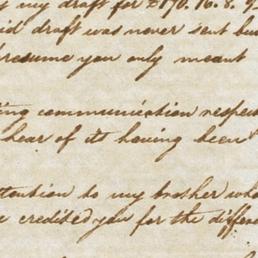 my draft for £170.16.8.
draft was never sent but
presume you only meant
communication respect
hear of its having been
attention to my brother who
credited you for the differen